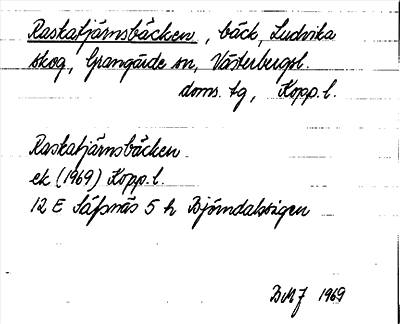 Raskatjärnsbäcken, bäck, Ludvika
skog, Grangärde sn, Västerbergsl.
doms. tg, Kopp. l.
Raskatjärnsbäcken
ek (1969) Kopp. l.
12 E Säfsnäs 5 h Björndalsvägen
BMJ 1969